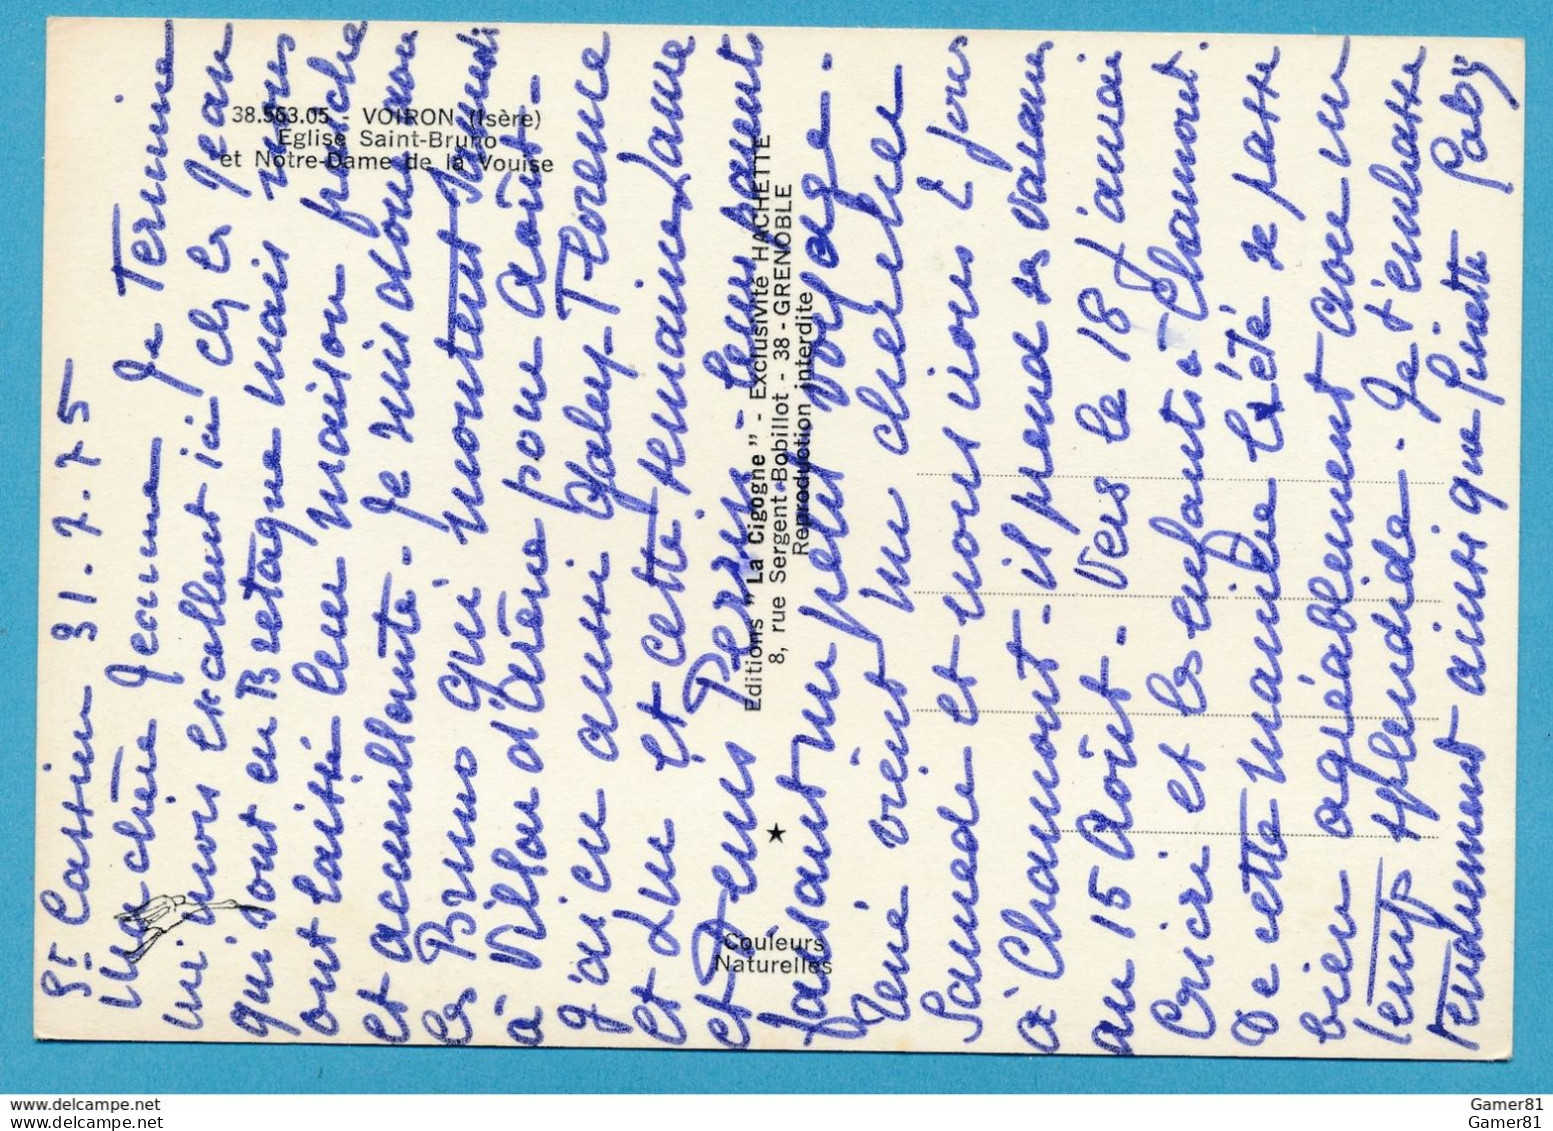 St Cassien 31.7.75
Ma chère Jeanne Je termine
mi mois excellent ici chez les Jean
qui sont en Bretagne mais nous
ont laissé leur maison fraîche
et accueillante. Je suis donc
les Bruno qui montent Samedi
à Villar d'Arène pour Août.
J'ai eu aussi Florence
et Lu et cette semaine Janne
et Denis Perrin. leur
faisant un petit voyage.
René vient me chercher
Samedi et nous irons 2 jours
à Chamont. il prend ses vacances
au 15 Août. Vers le 18 j'aurai
Cricri et les enfants à Chamont.
De cette manière l'été se passe
bien agréablement avec un
temps splendide. Je t'embrasse
tendrement ainsi que Ginette Gaby
38.563.05 - VOIRON (Isère)
Eglise Saint-Bruno
et Notre-Dame de la Vouise
Editions " La Cigogne " - Exclusivité HACHETTE
8, rue Sergent-Bobillot - 38 - GRENOBLE
Reproduction interdite
Couleurs
Naturelles
www.delcampe.net
Gamer81
www.delcampe.net
Gamer81